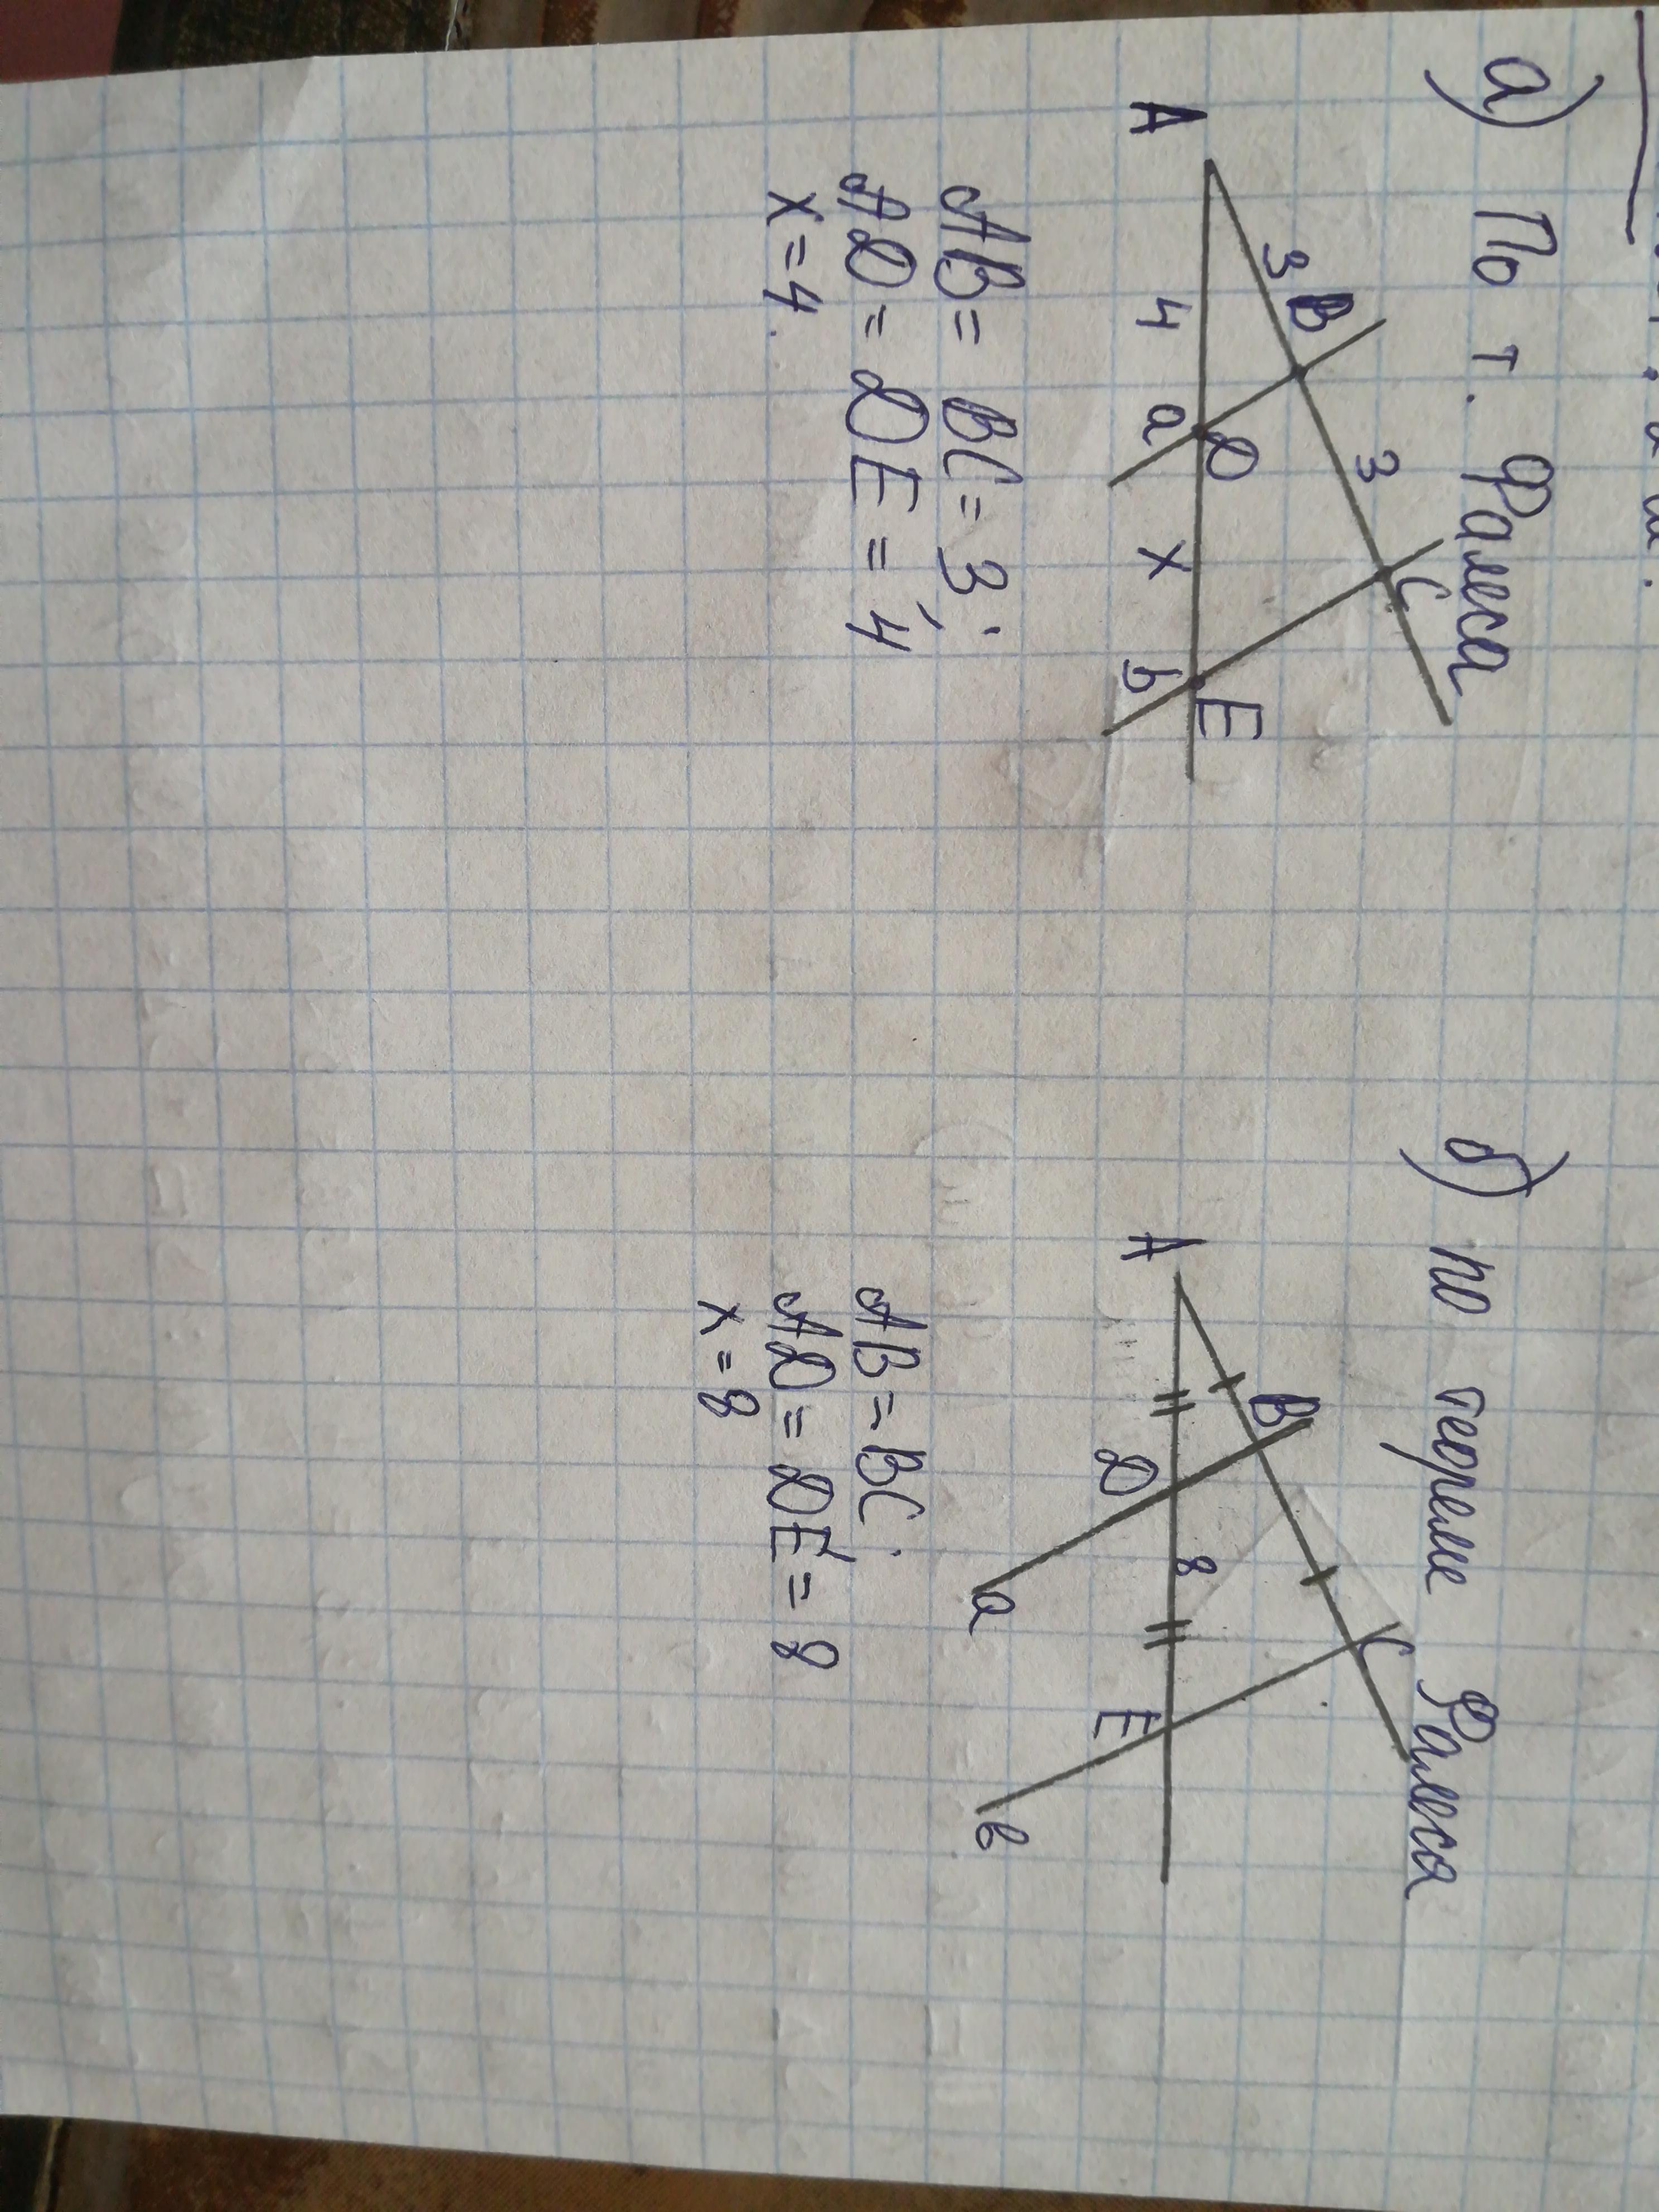 а) По т. Фалеса
A 3 B 3 C
4 a D x b E
AB = BC = 3;
AD = DE = 4
x = 4.
б) по теореме Фалеса
A B C
D 8 E
a в
AB = BC.
AD = DE = 8
x = 8